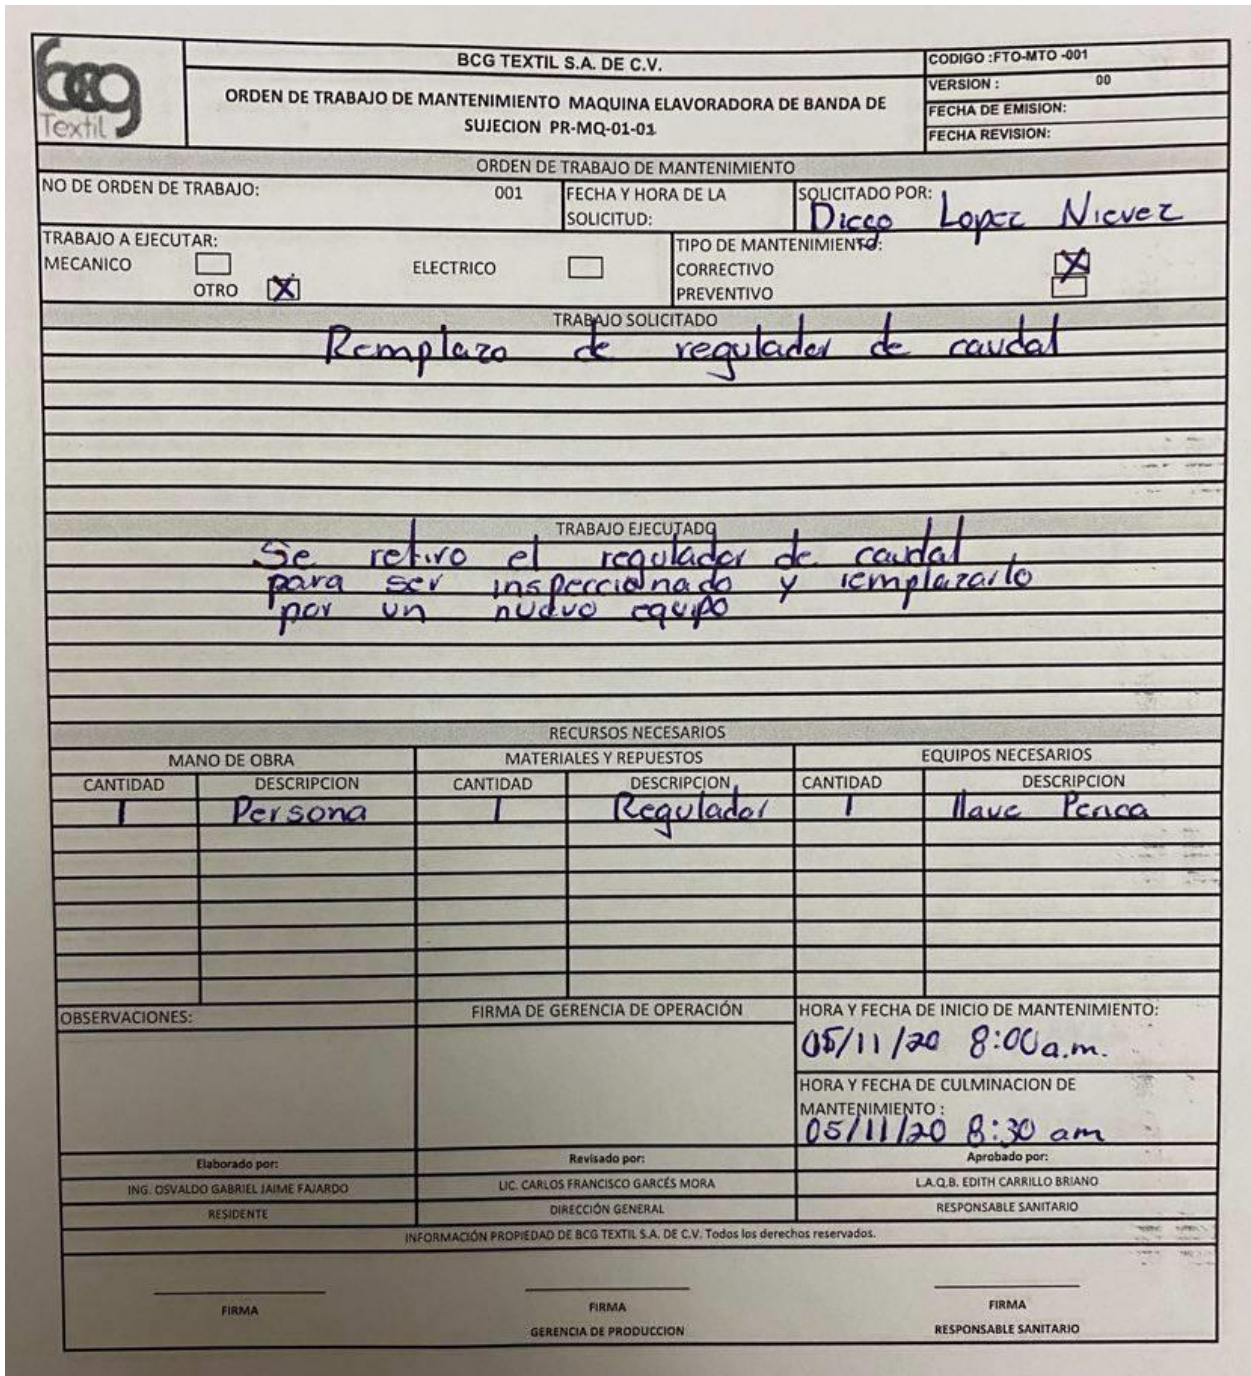 bcg
Textil
BCG TEXTIL S.A. DE C.V.
ORDEN DE TRABAJO DE MANTENIMIENTO MAQUINA ELAVORADORA DE BANDA DE
SUJECION PR-MQ-01-01
CODIGO :FTO-MTO -001
VERSION : 00
FECHA DE EMISION:
FECHA REVISION:
ORDEN DE TRABAJO DE MANTENIMIENTO
NO DE ORDEN DE TRABAJO: 001
FECHA Y HORA DE LA
SOLICITUD:
SOLICITADO POR:
Diego Lopez Nievez
TRABAJO A EJECUTAR:
MECANICO
ELECTRICO
OTRO X
TIPO DE MANTENIMIENTO:
CORRECTIVO X
PREVENTIVO
TRABAJO SOLICITADO
Remplazo de regulador de caudal
TRABAJO EJECUTADO
Se retiro el regulador de caudal
para ser inspeccionado y remplazarlo
por un nuevo equipo
RECURSOS NECESARIOS
MANO DE OBRA MATERIALES Y REPUESTOS EQUIPOS NECESARIOS
CANTIDAD DESCRIPCION CANTIDAD DESCRIPCION CANTIDAD DESCRIPCION
1 Persona 1 Regulador 1 llave Perica
OBSERVACIONES:
FIRMA DE GERENCIA DE OPERACIÓN
HORA Y FECHA DE INICIO DE MANTENIMIENTO:
05/11/20 8:00a.m.
HORA Y FECHA DE CULMINACION DE
MANTENIMIENTO :
05/11/20 8:30 am
Elaborado por: Revisado por: Aprobado por:
ING. OSVALDO GABRIEL JAIME FAJARDO LIC. CARLOS FRANCISCO GARCÉS MORA L.A.Q.B. EDITH CARRILLO BRIANO
RESIDENTE DIRECCIÓN GENERAL RESPONSABLE SANITARIO
INFORMACIÓN PROPIEDAD DE BCG TEXTIL S.A. DE C.V. Todos los derechos reservados.
FIRMA FIRMA FIRMA
GERENCIA DE PRODUCCION RESPONSABLE SANITARIO